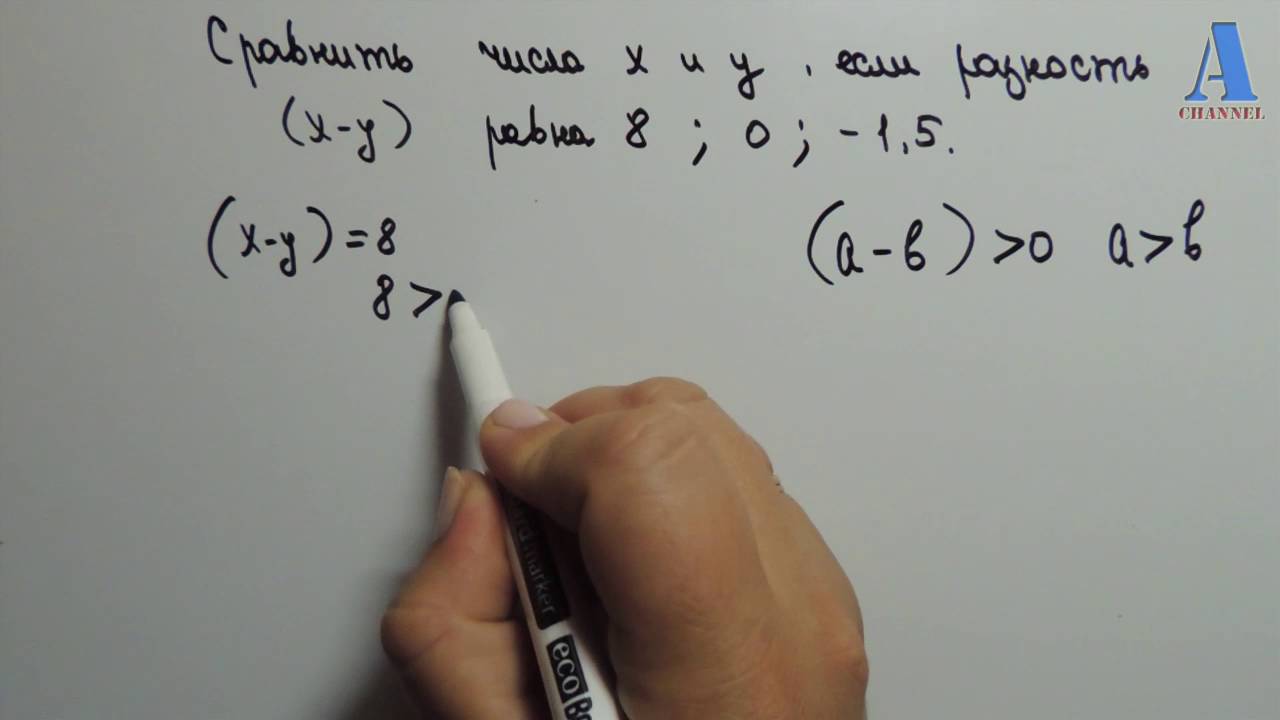 Сравнить числа х и у, если разность
(х-у) равна 8 ; 0 ; -1,5.
(х-у)=8
8 >
(а-в)>0 а>в
A
CHANNEL
board marker
eco Bo